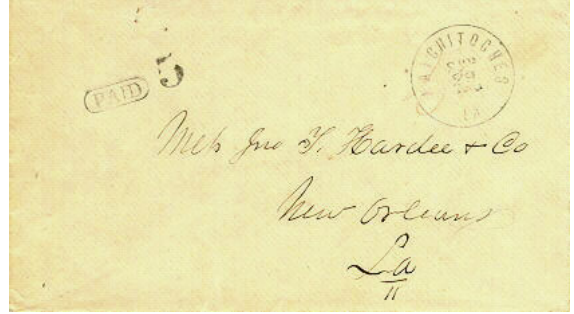 PAID 5
NATCHITOCHES
LA
Mess Jno T. Hardee & Co
New Orleans
La
11